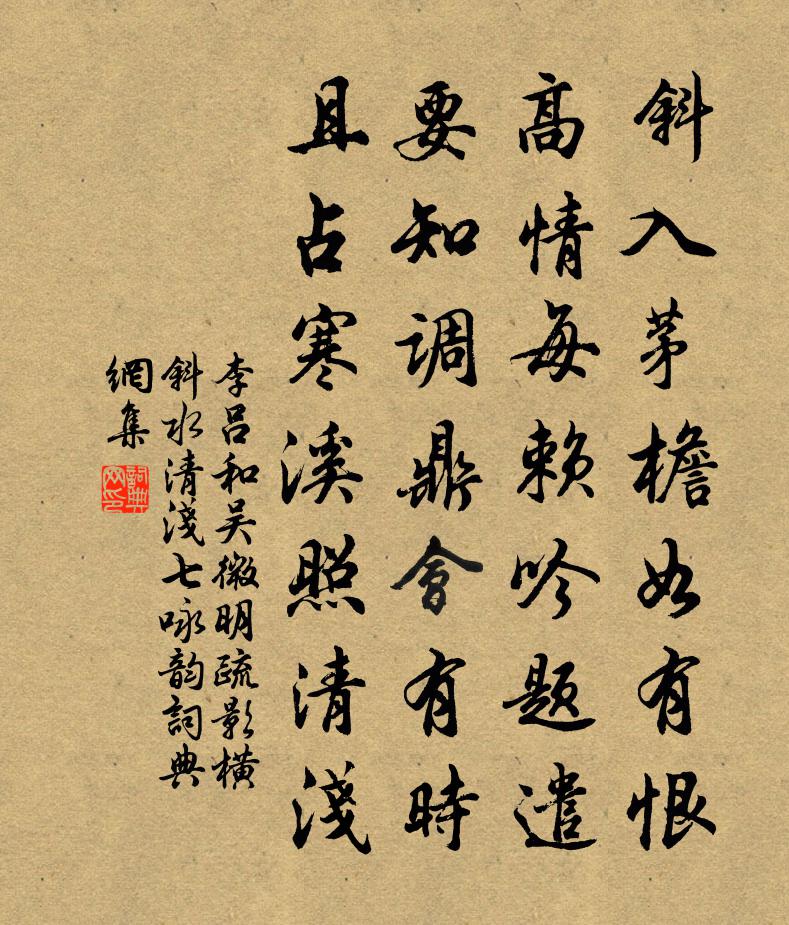 斜入茅檐如有恨
高情每赖吟题遣
要知调鼎会有時
且占寒溪照清淺
李吕和吴微明疏影横
斜水清淺七咏韵詞典
網集
詞典
网印